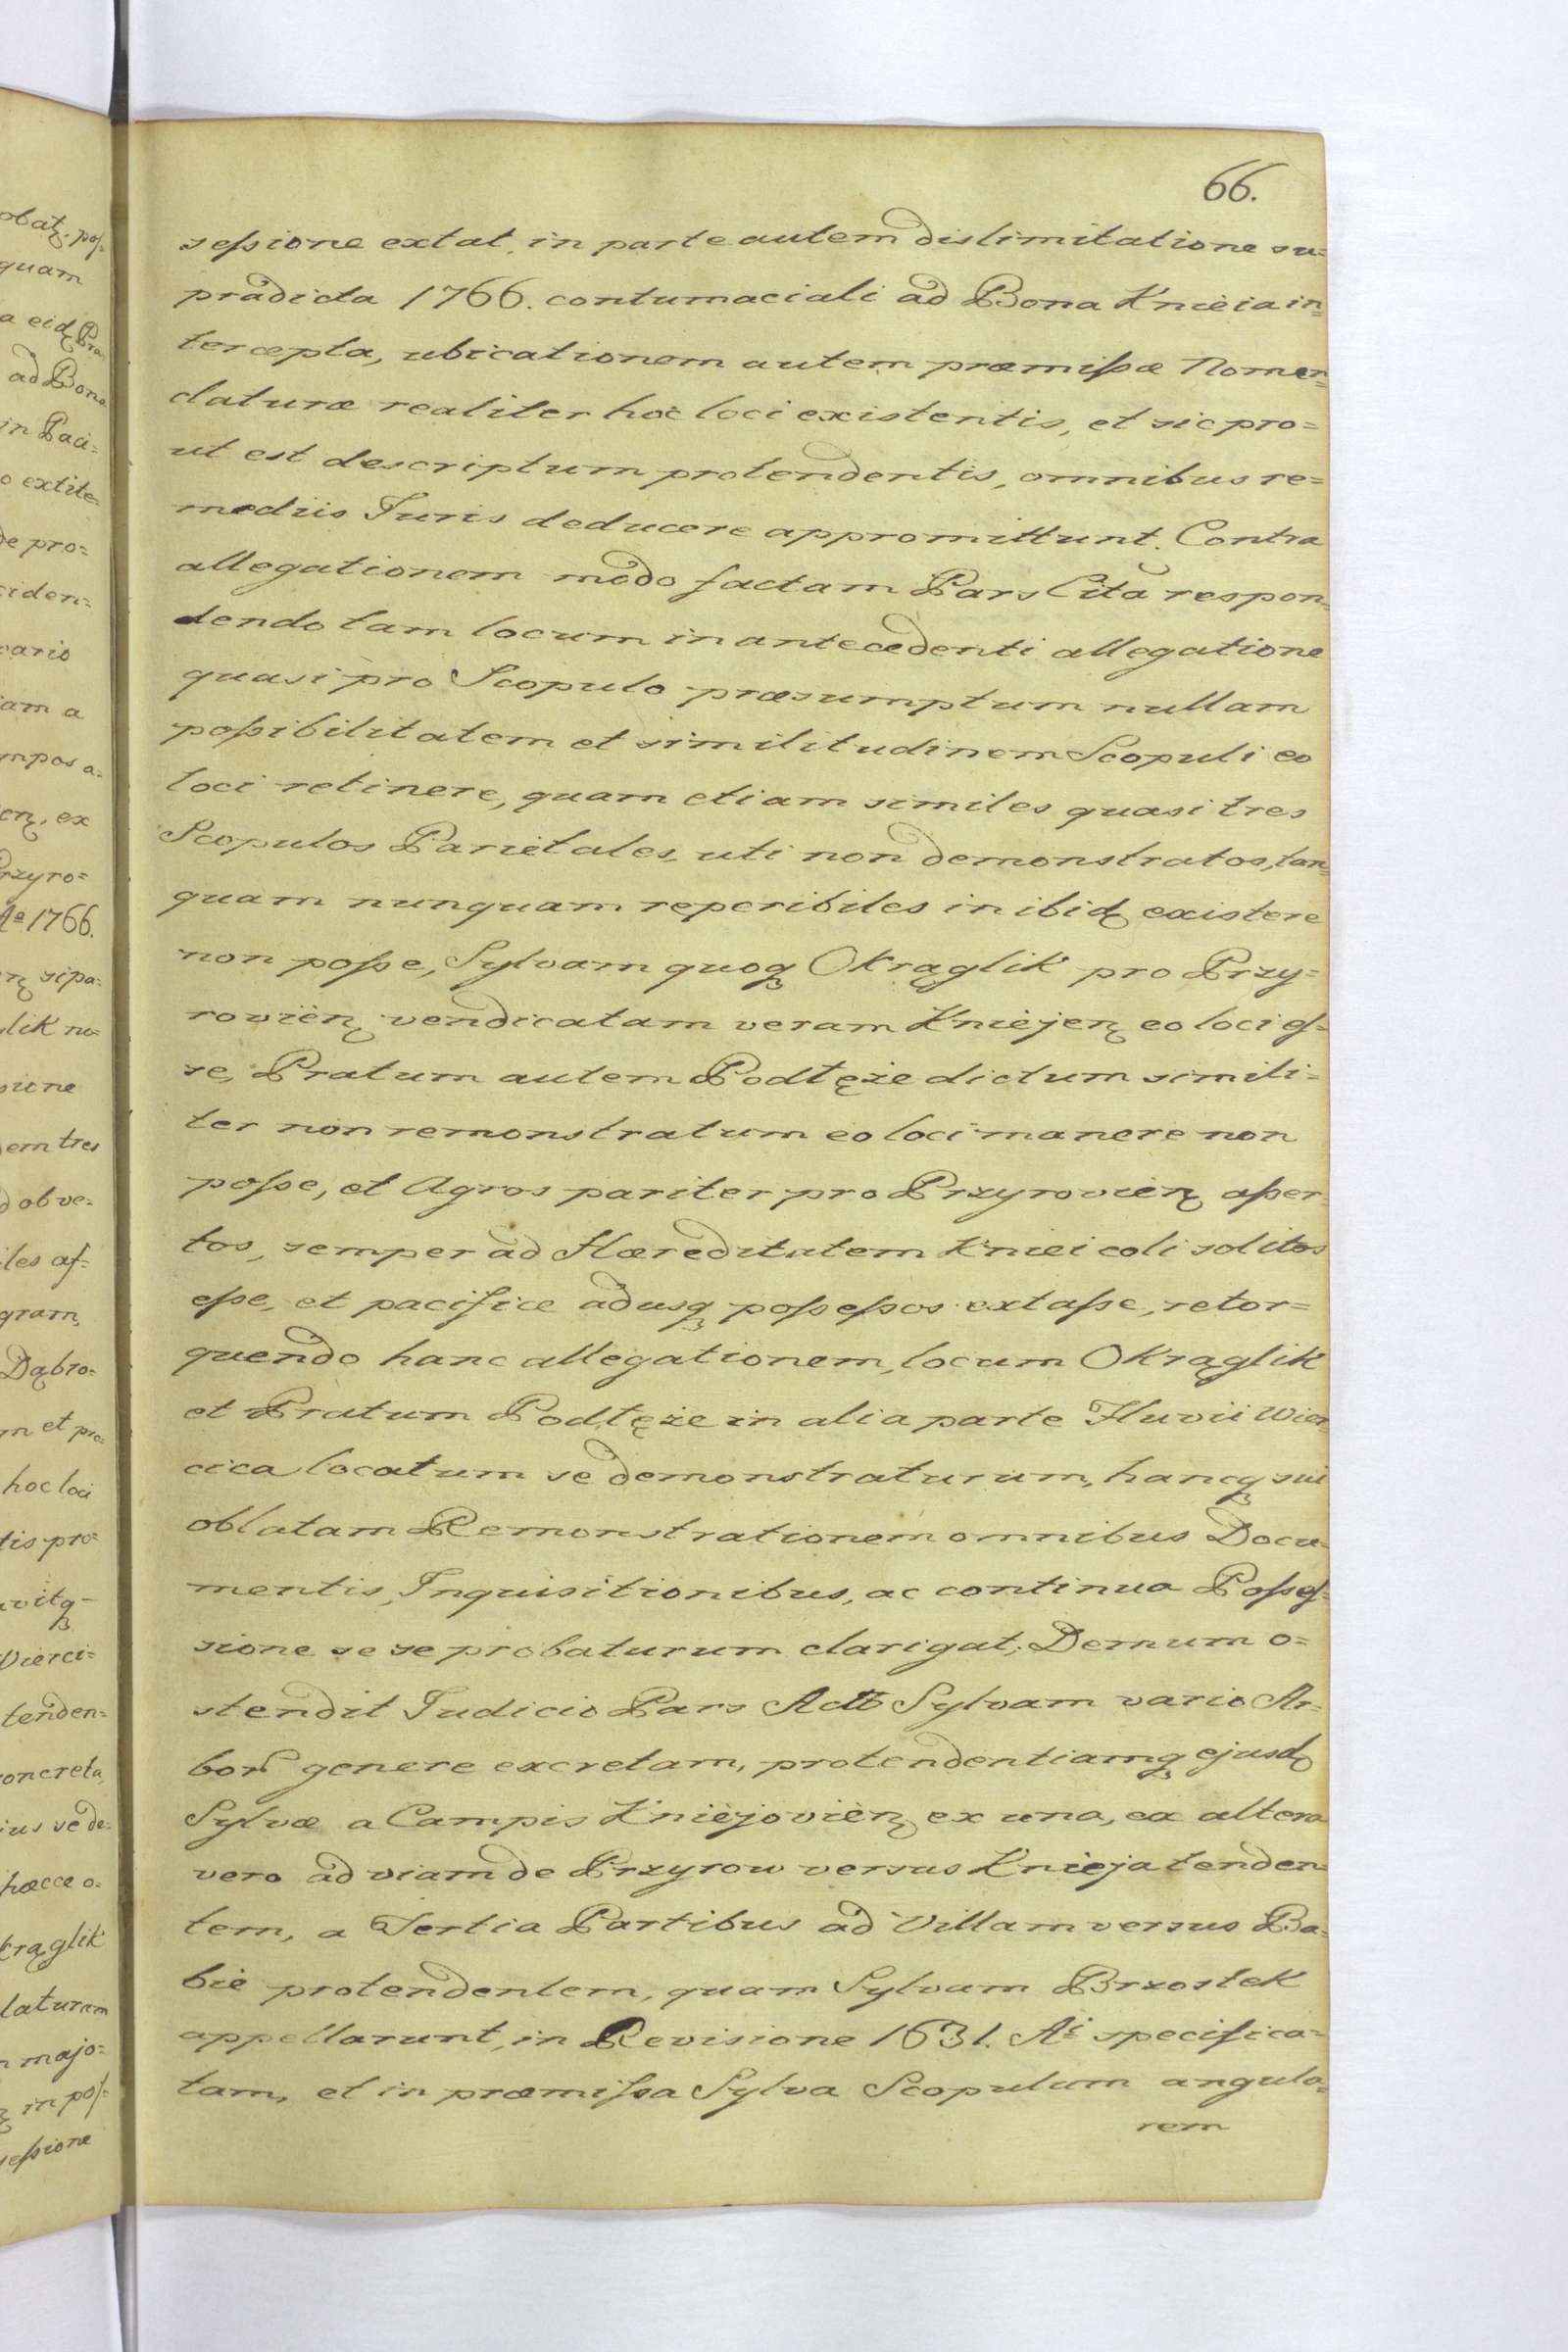 66.
seſsione extat, in parte autem dislimitatione su=
prædicta 1766. contumaciali ad Bona Knieia in=
tercepta, ubicationem autem præmiſsæ Nomen=
claturæ realiter hoc loci existentis, et sic pro=
ut est descriptum protendentis, omnibus re=
mediis Juris deducere appromittunt. Contra
allegationem modo factam Pars Citã respon=
dendo tam locum in antecedenti allegatione
quasi pro Scopulo præsumptum nullam
poſsibilitatem et similitudinem Scopuli eo
loci retinere, quam etiam similes quasi tres
Scopulos Parietales, uti non demonstratos, tan=
quam nunquam reperibiles in ibid existere
non poſse, Sylvam quoq Okrąglik pro Przy=
rovien vendicatam veram Kniejen eo loci eſ=
se, Pratum autem Podtęże dictum simili=
ter non remonstratum eo loci manere non
poſse, et Agros pariter pro Przyrovien aſser=
tos, semper ad Hæreditatem Kniei coli solitos
eſse, et pacifice adusq poſseſsos extaſse, retor=
quendo hanc allegationem, locum Okrąglik
et Pratum Podtęże in alia parte Fluvii Wier=
cica locatum se demonstraturum, hancq sui
oblatam Remonstrationem omnibus Docu=
mentis, Inquisitionibus, ac continua Poſseſ=
sione se se probaturum clarigat; Demum o=
stendit Judicio Pars Actõ Sylvam vario Ar=
bor genere excretam, protendentiamq ejusd
Sylvæ a Campis Kniejovien ex una, ex altera
vero ad viam de Przyrow versus Knieja tenden=
tem, a Tertia Partibus ad Villam versus Ba=
bie protendentem, quam Sylvam Brzostek
appellarunt, in Revisione 1631. Ai specifica=
tam, et in præmiſsa Sylva Scopulum angula=
rem